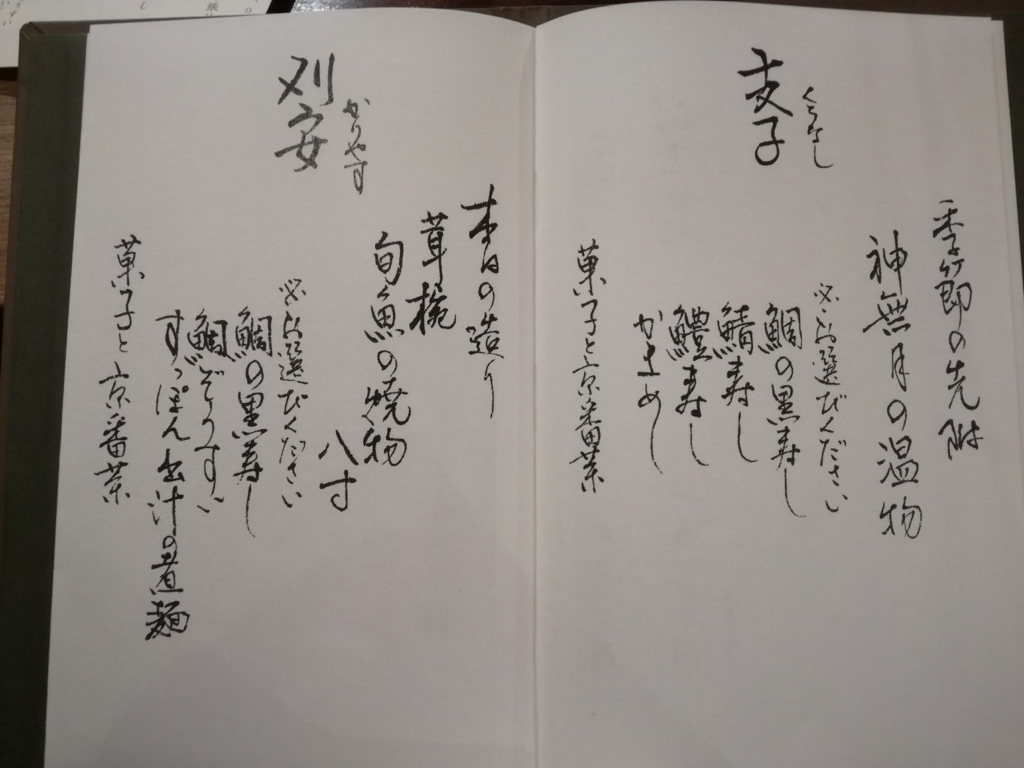 支子
くちなし
季節の先附
神無月の温物
※お選びください
鯛の黒寿し
鯖寿し
鱧寿し
かまめし
菓子と京番茶
刈安
かりやす
本日の造り
茸椀
旬魚の焼物
八寸
※お選びください
鯛の黒寿し
鯛ぞうすい
すっぽん出汁の煮麺
菓子と京番茶